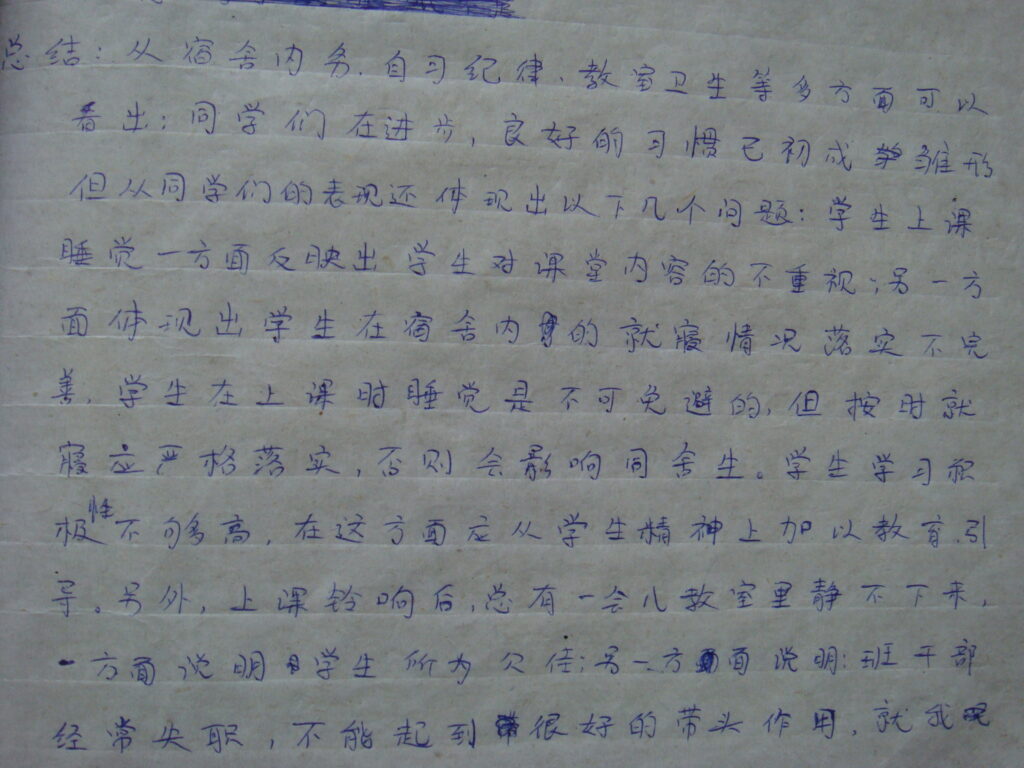 总结：从宿舍内务、自习纪律、教室卫生等多方面可以
看出：同学们在进步，良好的习惯已初成雏形
但从同学们的表现还体现出以下几个问题：学生上课
睡觉一方面反映出学生对课堂内容的不重视；另一方
面体现出学生在宿舍内的就寝情况落实不完
善，学生在上课时睡觉是不可免避的，但按时就
寝应严格落实，否则会影响同舍生。学生学习积
极性不够多高，在这方面应从学生精神上加以教育引
导。另外，上课铃响后，总有一会儿教室里静不下来，
一方面说明学生所为欠佳；另一方面说明：班干部
经常失职，不能起到很好的带头作用，就我